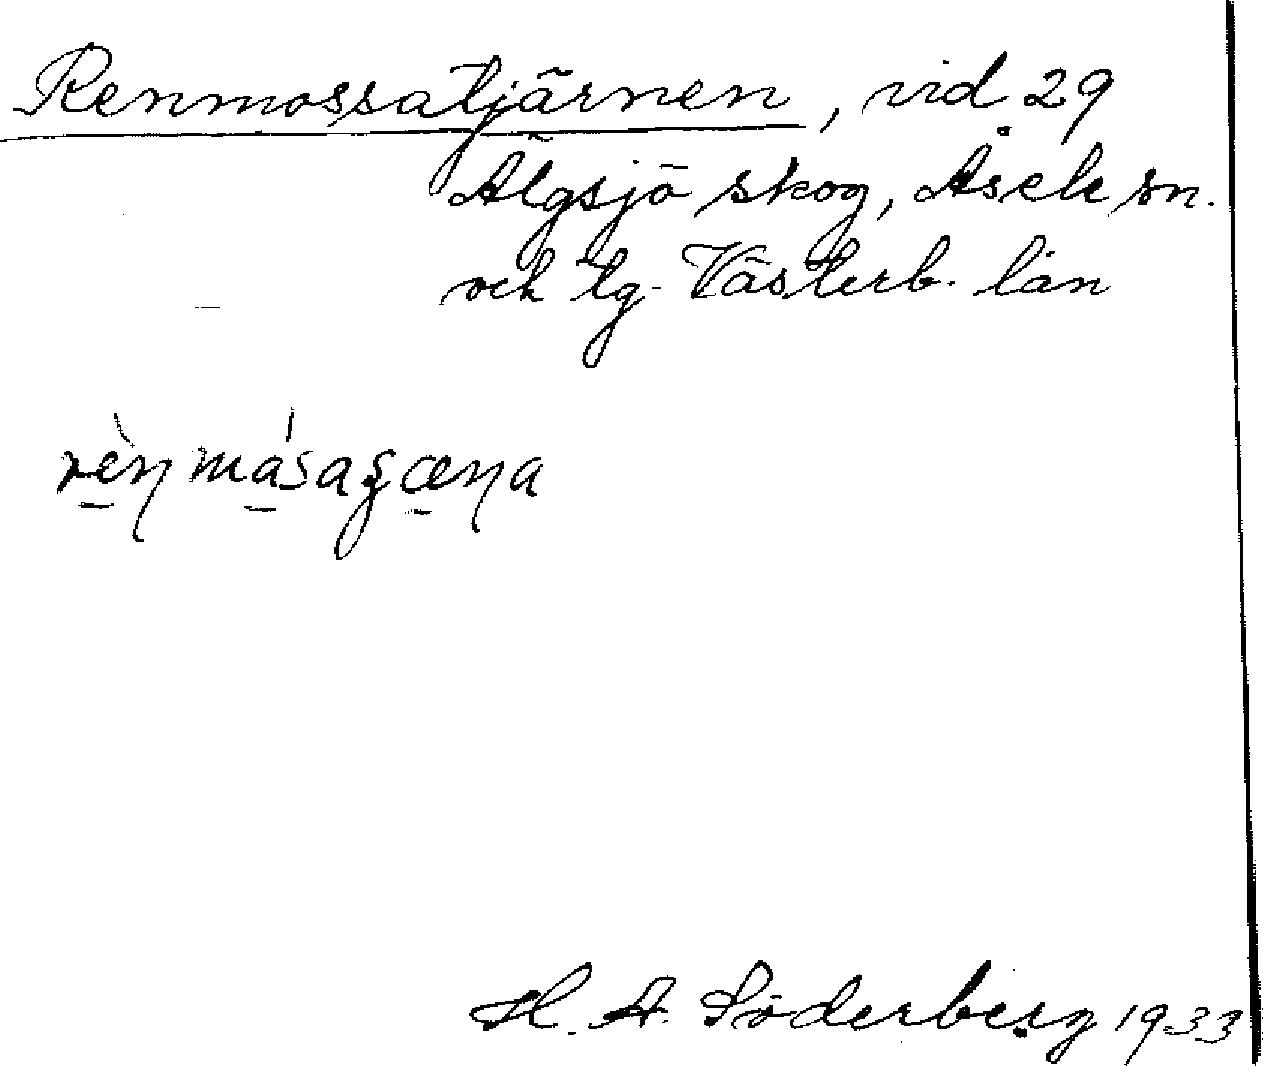 Renmossatjärnen, vid 29
Älgsjö skog, Åsele sn.
och tg. Västerb. län
rènmásaʂæna
H. A. Söderberg 1933